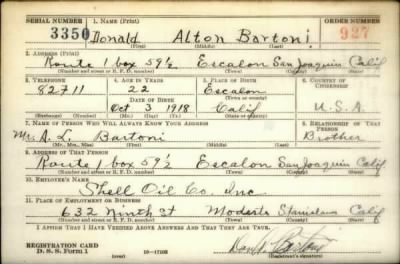 SERIAL NUMBER 1. NAME (Print) ORDER NUMBER
3350 Donald Alton Bartoni 927
(First) (Middle) (Last)
2. ADDRESS (Print)
Route 1 box 59½ Escalon San Joaquin Calif
(Number and street or R. F. D. number) (Town) (County) (State)
3. TELEPHONE 4. AGE IN YEARS 5. PLACE OF BIRTH 6. COUNTRY OF CITIZENSHIP
82711 22 Escalon
DATE OF BIRTH (Town or county)
Oct 3 1918 Calif U.S.A.
(Exchange) (Number) (Mo.) (Day) (Yr.) (State or country)
7. NAME OF PERSON WHO WILL ALWAYS KNOW YOUR ADDRESS 8. RELATIONSHIP OF THAT PERSON
Mr. A. L. Bartoni Brother
(Mr., Mrs., Miss) (First) (Middle) (Last)
9. ADDRESS OF THAT PERSON
Route 1 box 59½ Escalon San Joaquin Calif
(Number and street or R. F. D. number) (Town) (County) (State)
10. EMPLOYER'S NAME
Shell Oil Co. Inc.
11. PLACE OF EMPLOYMENT OR BUSINESS
632 Ninth St Modesto Stanislaus Calif
(Number and street or R. F. D. number) (Town) (County) (State)
I AFFIRM THAT I HAVE VERIFIED ABOVE ANSWERS AND THAT THEY ARE TRUE.
REGISTRATION CARD
D. S. S. Form 1 (Registrant's signature)